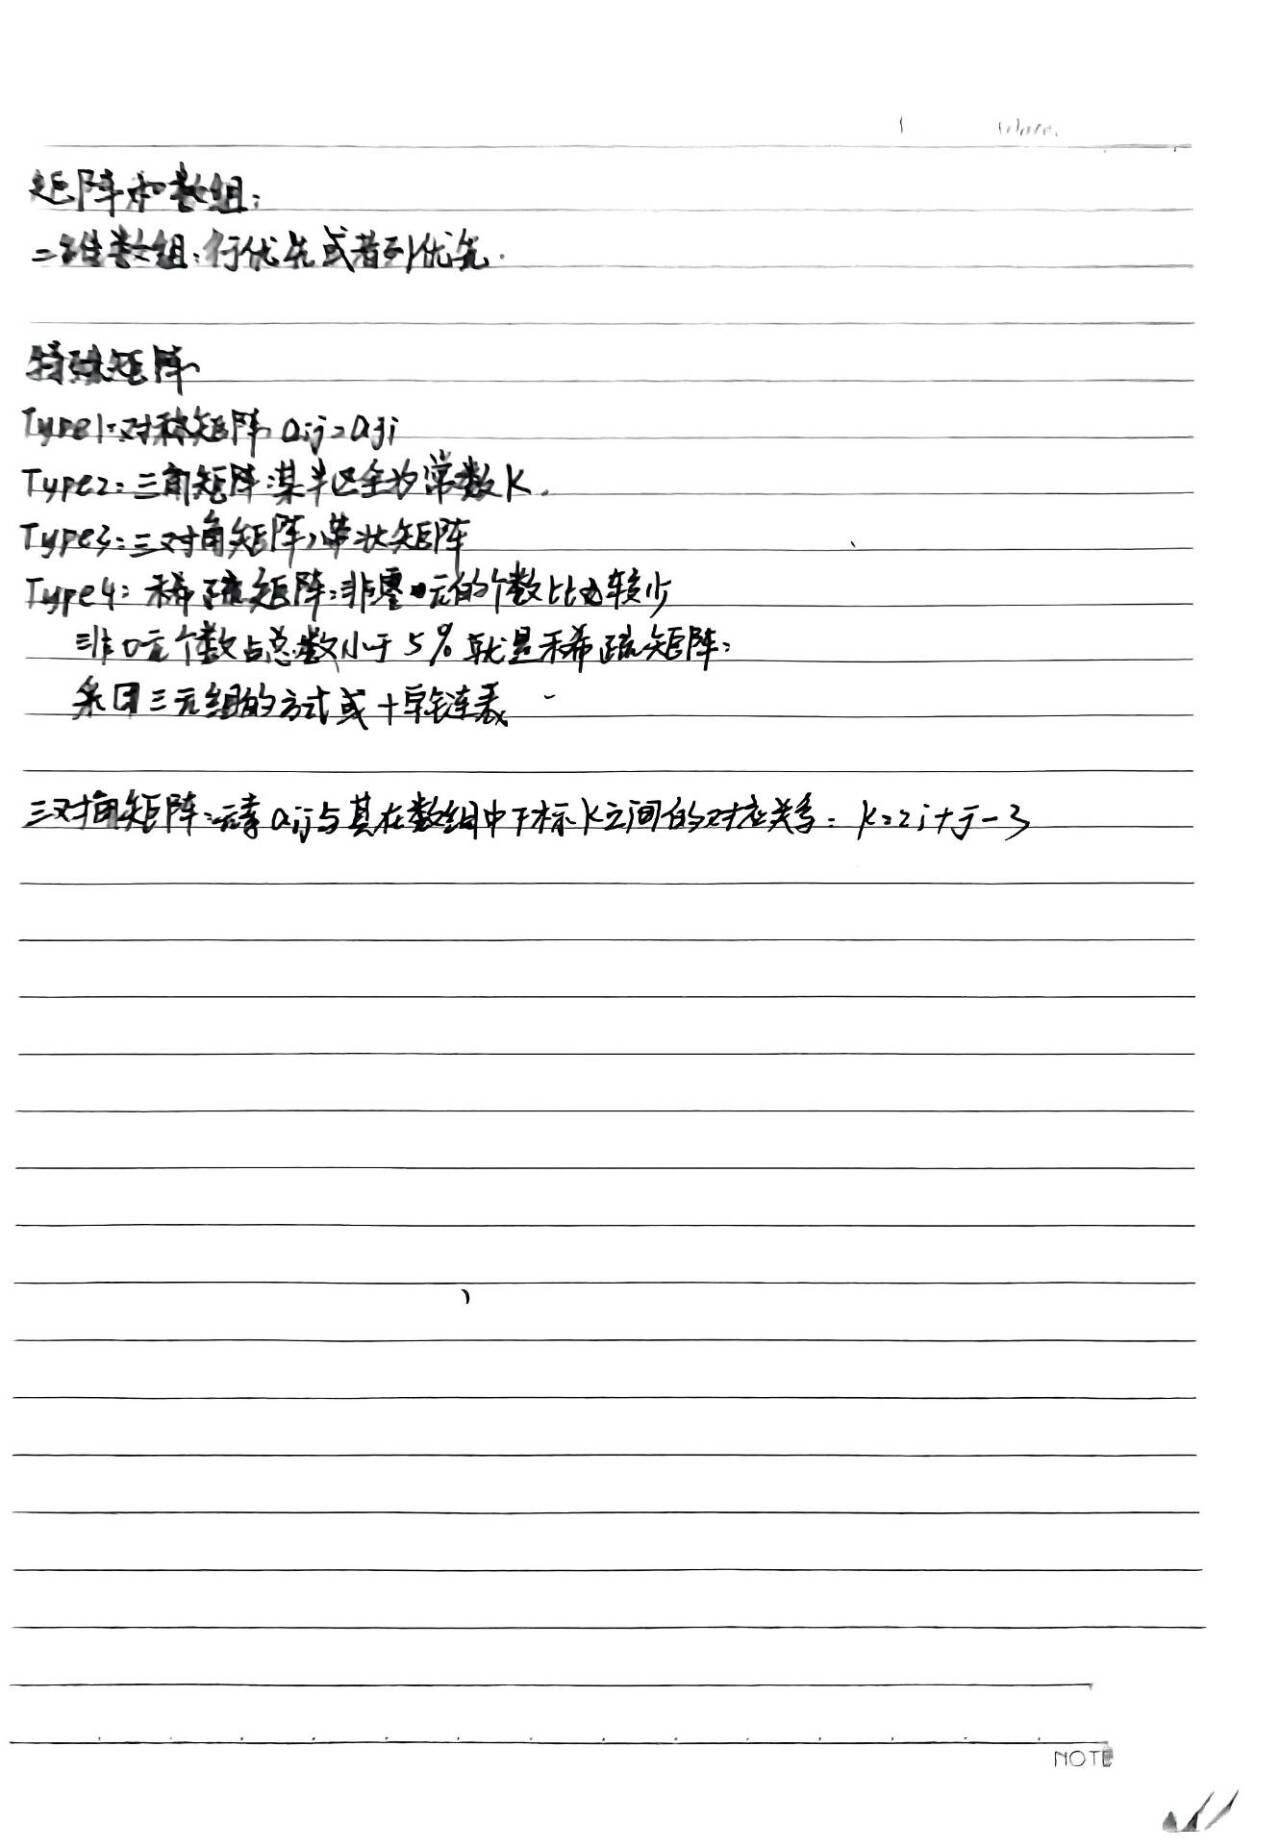 矩阵和数组:
二维数组:行优先或者列优先.
特殊矩阵
Type1:对称矩阵 aij=aji
Type2:三角矩阵:某半区全为常数K.
Type3:三对角矩阵,带状矩阵
Type4:稀疏矩阵:非零元的个数比较少
非0元个数占总数小于5%就是稀疏矩阵;
采用三元组的方式或十字链表
三对角矩阵:元素aij与其在数组中下标k之间的对应关系: k=2i+j-3
NOTE